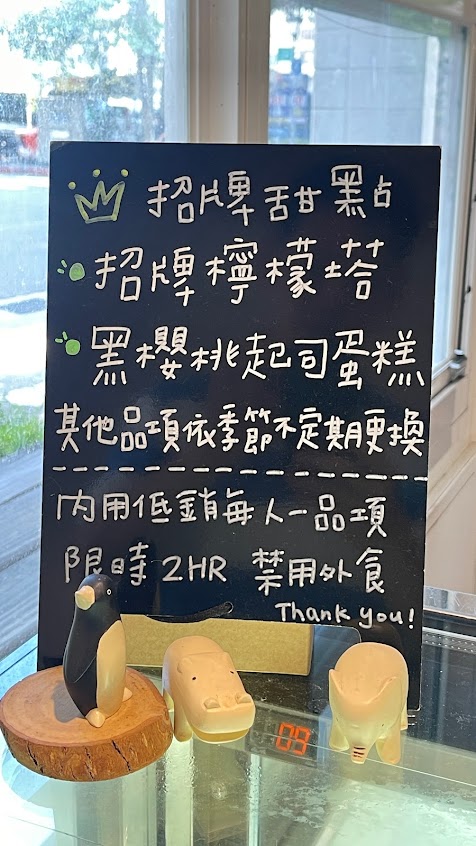 招牌甜點
招牌檸檬塔
黑櫻桃起司蛋糕
其他品項依季節不定期更換
內用低銷每人一品項
限時2HR 禁用外食
Thank you!
09